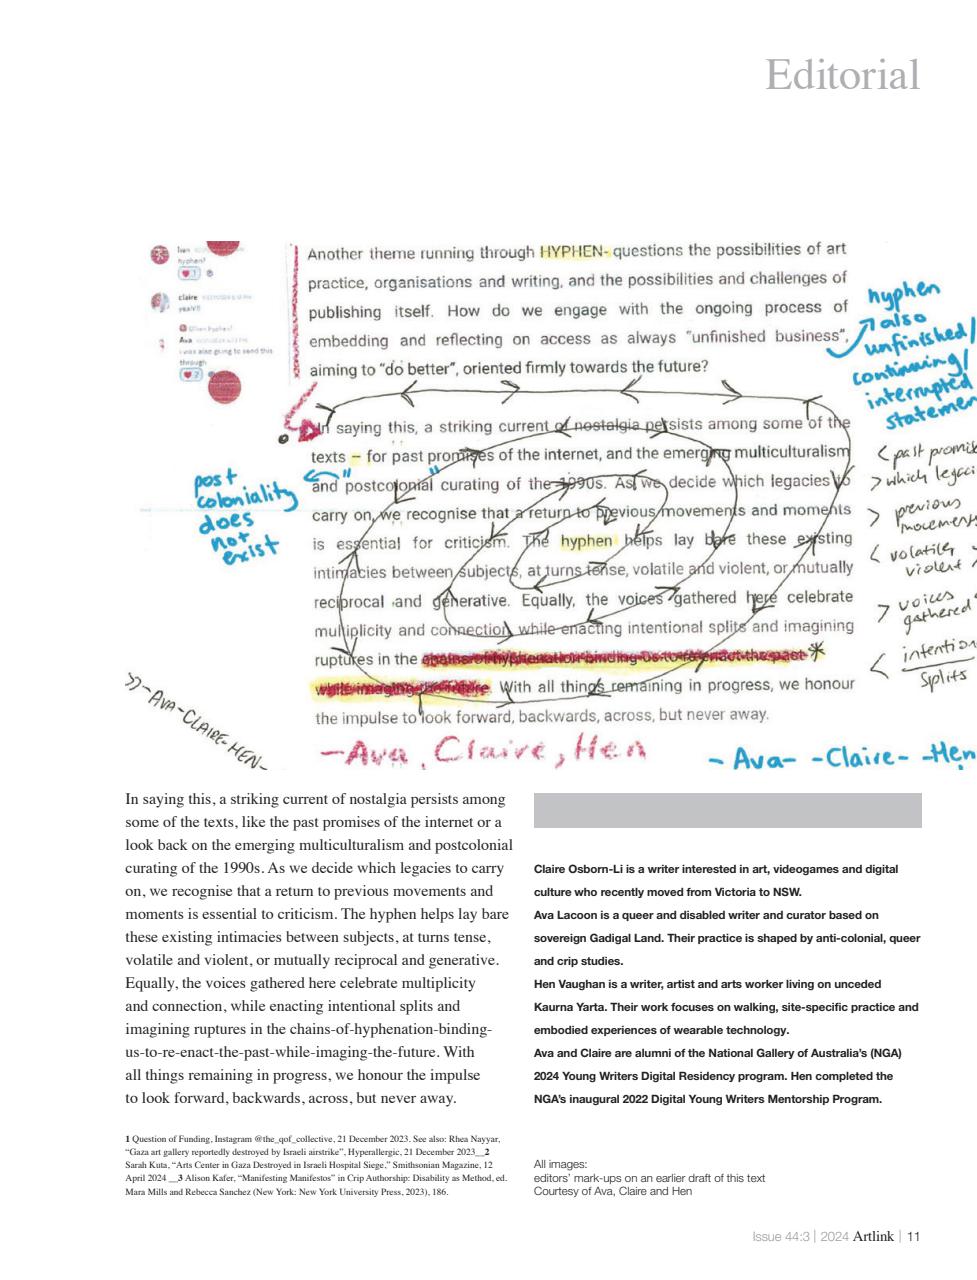 Editorial
Ivan
hyphen?
1
claire
yeah!!
Ava
i was also going to send this
through
2
Another theme running through HYPHEN- questions the possibilities of art
practice, organisations and writing, and the possibilities and challenges of
publishing itself. How do we engage with the ongoing process of
embedding and reflecting on access as always "unfinished business",
aiming to "do better", oriented firmly towards the future?
hyphen
also
unfinished/
continuing/
interrupted
statemen
In saying this, a striking current of nostalgia persists among some of the
texts – for past promises of the internet, and the emerging multiculturalism
and postcolonial curating of the 1990s. As we decide which legacies to
carry on, we recognise that a return to previous movements and moments
is essential for criticism. The hyphen helps lay bare these existing
intimacies between subjects, at turns tense, volatile and violent, or mutually
reciprocal and generative. Equally, the voices gathered here celebrate
multiplicity and connection, while enacting intentional splits and imagining
ruptures in the chains-of-hyphenation-binding-us-to-re-enact-the-past-*
while-imaging-the-future. With all things remaining in progress, we honour
the impulse to look forward, backwards, across, but never away.
post
coloniality
does
not
exist
< past promis
> which legaci
> previous
movements
< volatile
violent
> voices
gathered
< intention
splits
>>-AVA-CLAIRE-HEN-
-Ava, Claire, Hen
- Ava- -Claire- -Hen
In saying this, a striking current of nostalgia persists among
some of the texts, like the past promises of the internet or a
look back on the emerging multiculturalism and postcolonial
curating of the 1990s. As we decide which legacies to carry
on, we recognise that a return to previous movements and
moments is essential to criticism. The hyphen helps lay bare
these existing intimacies between subjects, at turns tense,
volatile and violent, or mutually reciprocal and generative.
Equally, the voices gathered here celebrate multiplicity
and connection, while enacting intentional splits and
imagining ruptures in the chains-of-hyphenation-binding-
us-to-re-enact-the-past-while-imaging-the-future. With
all things remaining in progress, we honour the impulse
to look forward, backwards, across, but never away.
1 Question of Funding, Instagram @the_qof_collective, 21 December 2023. See also: Rhea Nayyar,
“Gaza art gallery reportedly destroyed by Israeli airstrike”, Hyperallergic, 21 December 2023__2
Sarah Kuta, “Arts Center in Gaza Destroyed in Israeli Hospital Siege,” Smithsonian Magazine, 12
April 2024 __3 Alison Kafer, “Manifesting Manifestos” in Crip Authorship: Disability as Method, ed.
Mara Mills and Rebecca Sanchez (New York: New York University Press, 2023), 186.
Claire Osborn-Li is a writer interested in art, videogames and digital
culture who recently moved from Victoria to NSW.
Ava Lacoon is a queer and disabled writer and curator based on
sovereign Gadigal Land. Their practice is shaped by anti-colonial, queer
and crip studies.
Hen Vaughan is a writer, artist and arts worker living on unceded
Kaurna Yarta. Their work focuses on walking, site-specific practice and
embodied experiences of wearable technology.
Ava and Claire are alumni of the National Gallery of Australia’s (NGA)
2024 Young Writers Digital Residency program. Hen completed the
NGA’s inaugural 2022 Digital Young Writers Mentorship Program.
All images:
editors’ mark-ups on an earlier draft of this text
Courtesy of Ava, Claire and Hen
Issue 44:3 | 2024 Artlink | 11